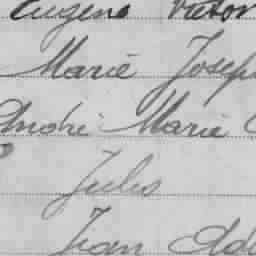 Eugène Victor
Marie Joseph
André Marie
Jules
Jean